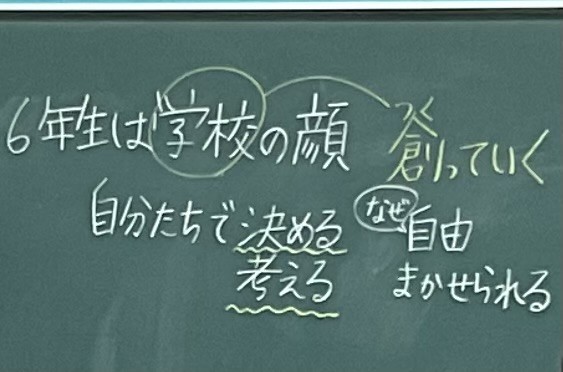 6年生は学校の顔
つく
創っていく
自分たちで決める
考える
なぜ
自由
まかせられる